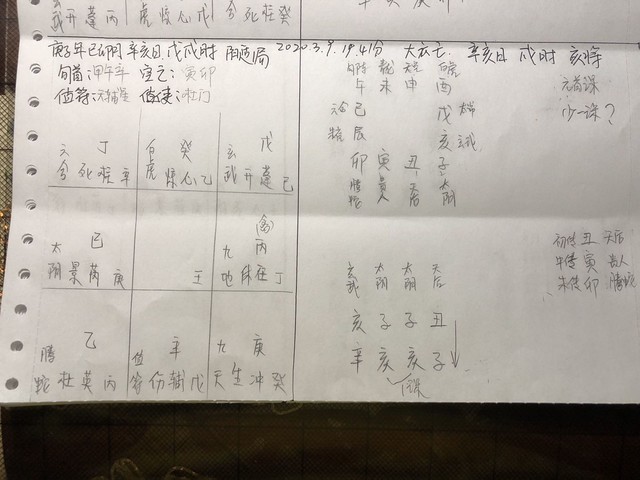 武开蓬丙 虎惊心戊 合死柱癸
庚子年己卯月 辛亥日 戊戌时 阳遁局 2020.3.9.19.41分 大六壬 辛亥日 戌时 亥将
旬首:甲午辛 空亡:寅卯
值符:天辅星 值使:杜门
六 丁 白 癸 玄 戊
合死柱辛 虎惊心乙 武开蓬己
太 己 九 禽 丙
阴景芮庚 壬 地休任丁
乙 值 辛 九 庚
蛇杜英丙 符伤辅戊 天生冲癸
午 未 申 酉
六合 巳 戌
辰 亥
卯 寅 丑 子
腾蛇 贵人 天后 太阴
元首课
少一课?
初传 丑 天后
中传 寅 贵人
末传 卯 腾蛇
玄武 太阴 太阴 天后
亥 子 子 丑
辛 亥 亥 子